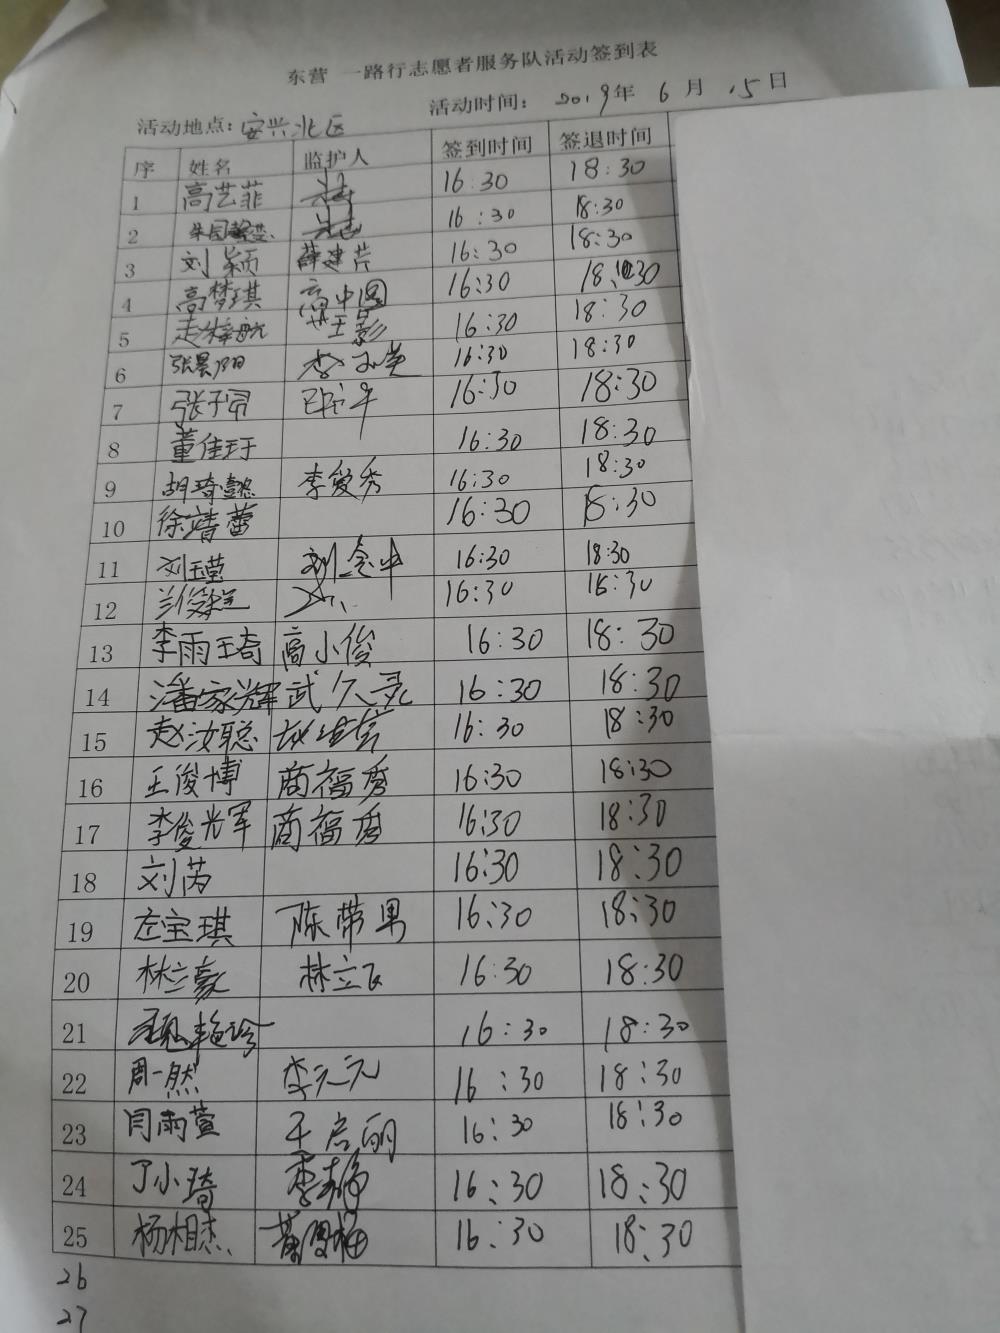 东营 一路行志愿者服务队活动签到表
活动地点：安兴北区 活动时间： 2019年 6 月 15 日
序 姓名 监护人 签到时间 签退时间
1 高艺菲 16:30 18:30
2 16:30 18:30
3 刘颖 薛建芹 16:30 18:30
4 高梦琪 高中国 16:30 18:30
5 赵梓航 王影 16:30 18:30
6 张景阳 16:30 18:30
7 张子 16:30 18:30
8 董佳玗 16:30 18:30
9 胡琦懿 李爱秀 16:30 18:30
10 徐靖蕾 16:30 18:30
11 刘玉莹 刘念中 16:30 18:30
12 兰俊 16:30 18:30
13 李雨琦 高小俊 16:30 18:30
14 潘家辉 武 16:30 18:30
15 赵汝聪 16:30 18:30
16 王俊博 商福秀 16:30 18:30
17 李俊光军 商福秀 16:30 18:30
18 刘芮 16:30 18:30
19 左宝琪 陈带男 16:30 18:30
20 林立豪 林立飞 16:30 18:30
21 艳玲 16:30 18:30
22 周一然 李元元 16:30 18:30
23 闫雨萱 王启丽 16:30 18:30
24 丁小琦 李梅 16:30 18:30
25 杨相杰 16:30 18:30
26
27